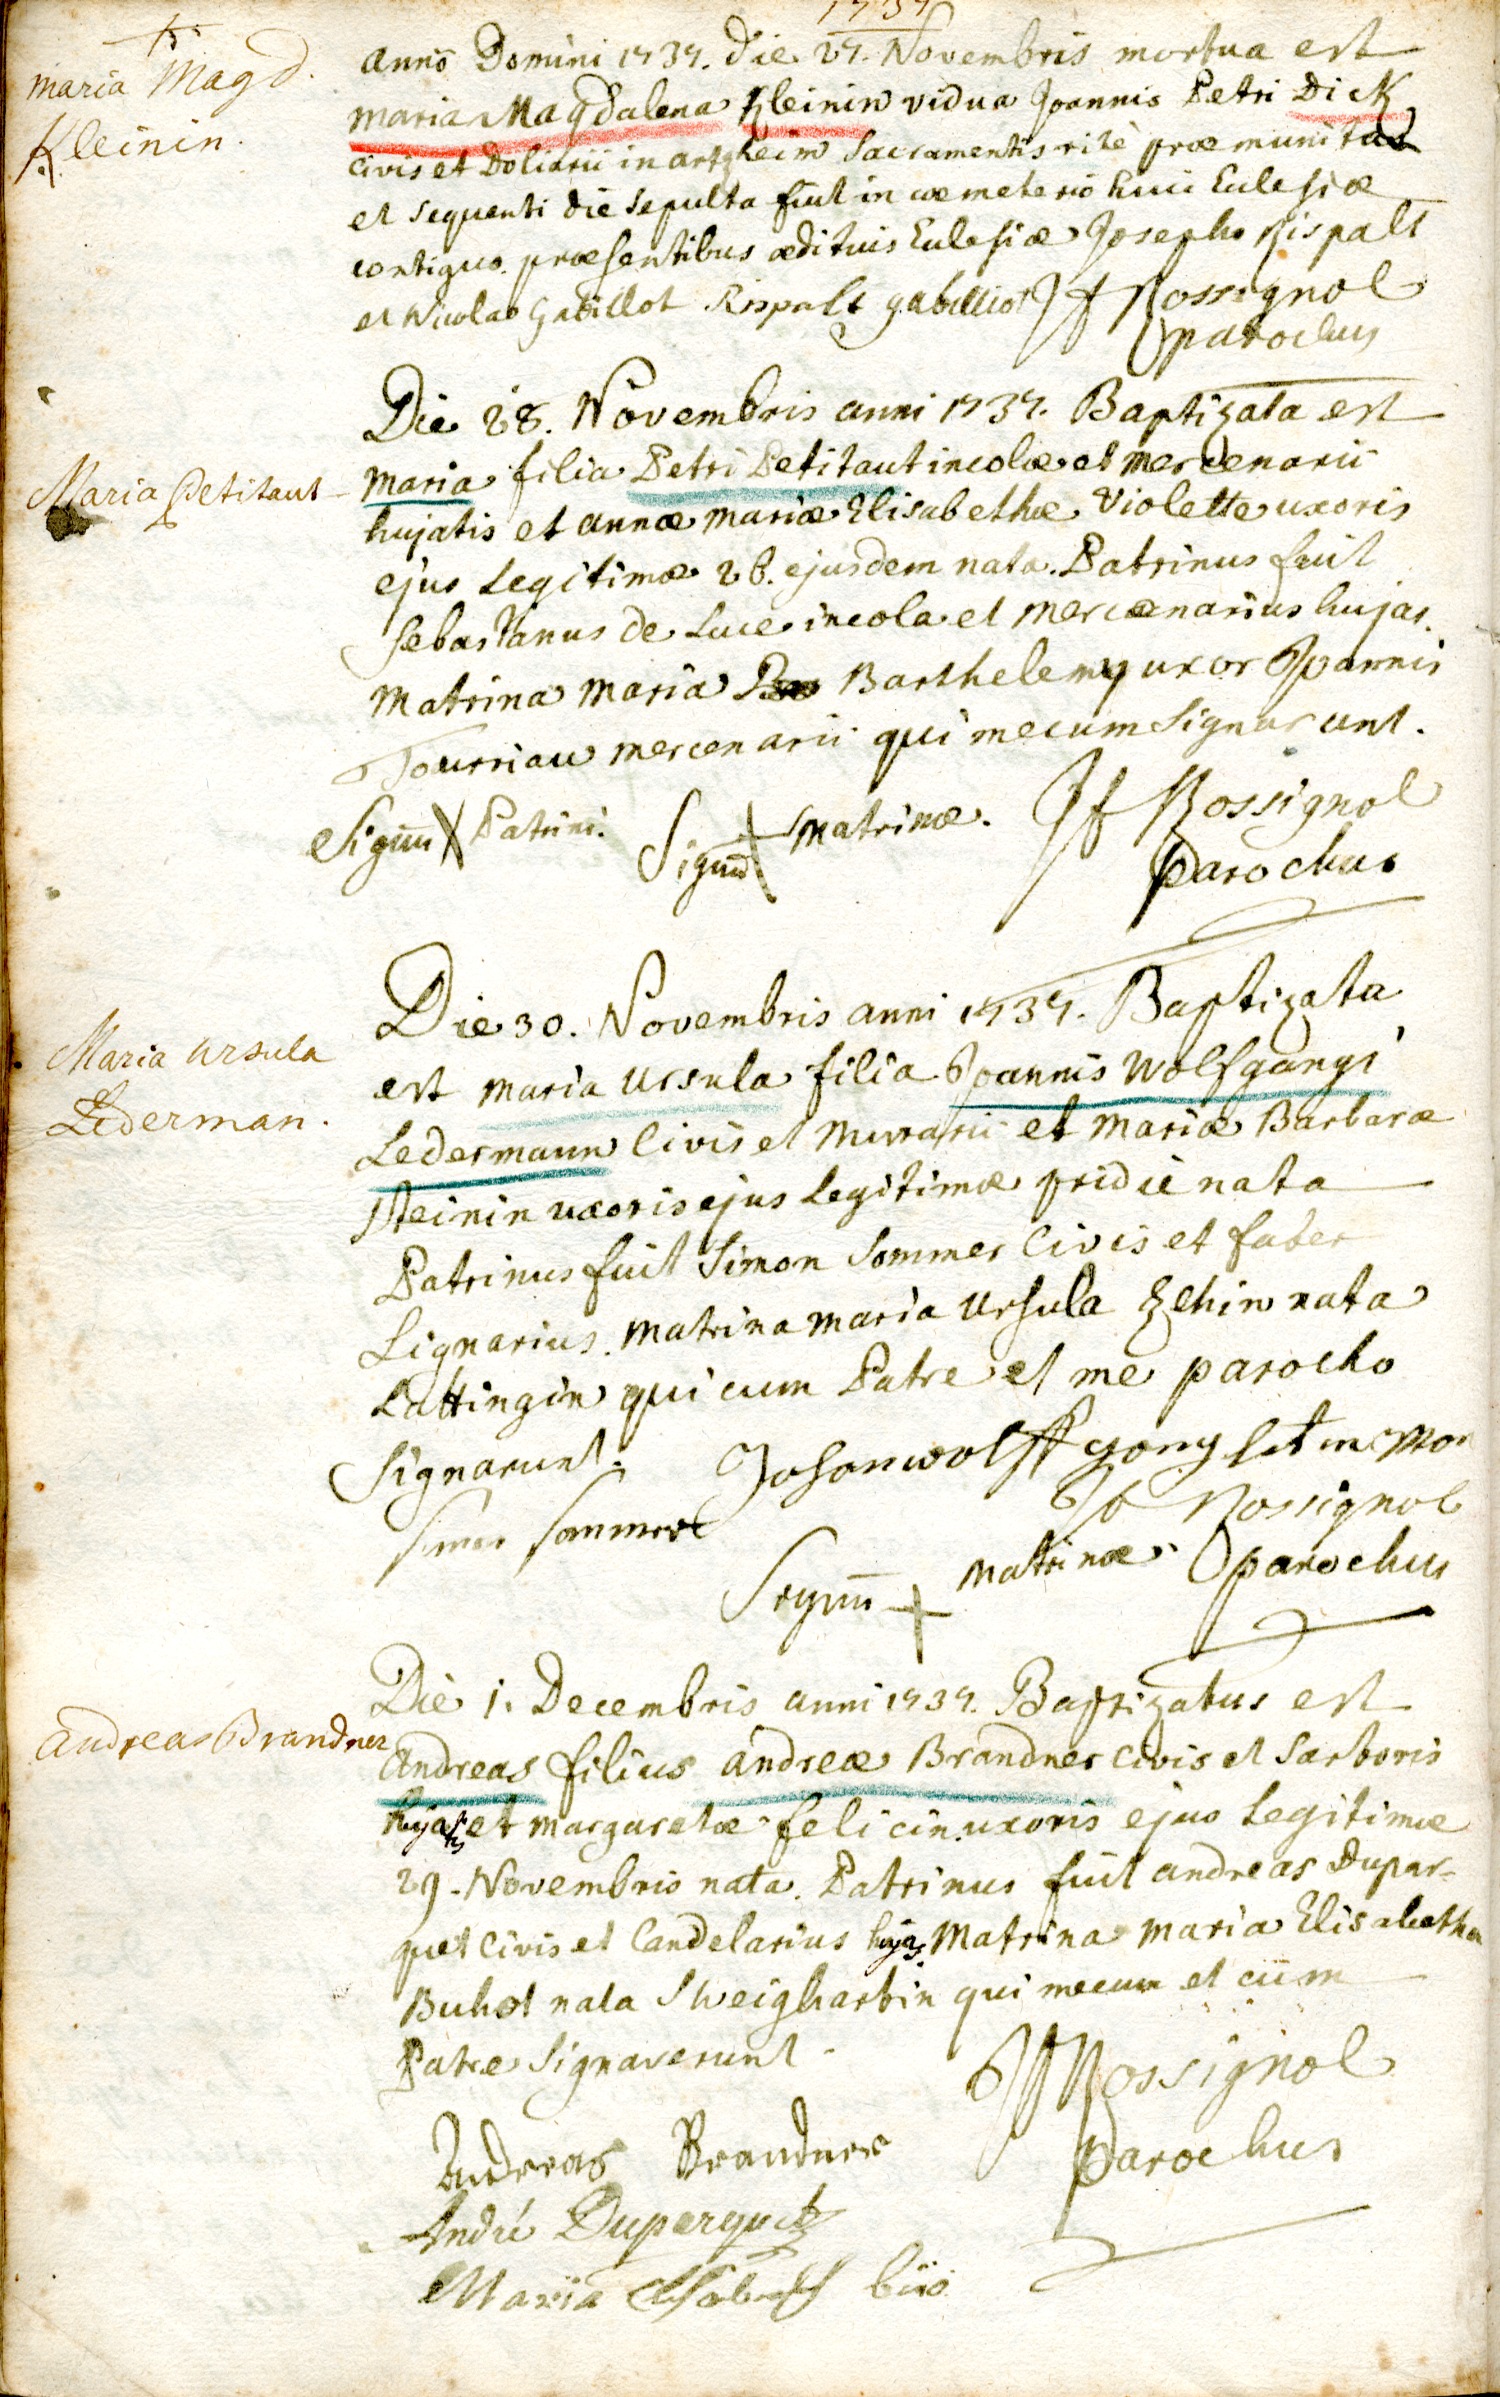 1737
†
maria Magd.
Kleinin.
anno Domini 1737. die 27. Novembris mortua est
maria Magdalena Kleinin vidua Joannis Petri Dick
civis et Doliarii in artzheim Sacramentis ritè præmunita
et sequenti die sepulta fuit in cœmeterio huic Eclesiæ
contiguo. præsentibus ædituis Eclesiæ Josepho Rispalt
et Nicolao Gabillot Rispalt gabilliot Jf Rossignol
parochus
Maria Petitaut
Die 28. Novembris anni 1737. Baptizata est
maria filia Petri Petitaut incolæ et mercenarii
hujatis et annæ mariæ Elisabethæ Violette uxoris
ejus Legitimæ 26. ejusdem nata. Patrinus fuit
Sebastianus de Luce incola et mercenarius hujas.
Matrina maria Barthelemy uxor Joannis
Tourriau mercenarii qui mecum Signarunt.
Signū X Patrini. Signū + Matrinæ. Jf Rossignol
Parochus
Maria ursula
Lederman.
Die 30. Novembris anni 1737. Baptizata
est maria ursula filia Joannis Wolfgangi
Ledermann Civis et Murarii et Mariæ Barbaræ
Steinin uxoris ejus Legitimæ pridie nata
Patrinus fuit Simon Sommer Civis et faber
Lignarius. Matrina maria Ursula Zehin nata
Lattingin qui cum Patre et me parocho
Signarunt. Johanwolff gong
Simon Sommer Jf Rossignol
Signū + matrinæ. parochus
andreas Brandner
Die 1. Decembris anni 1737. Baptizatus est
Andreas filius andreæ Brandner Civis et Sartoris
hujatis et margaretæ felicin uxoris ejus Legitimæ
29. Novembris nata. Patrinus fuit andreas Dupar-
quet Civis et Candelarius hujas. Matrina maria Elisabetha
Buhot nata Shweigharbin qui mecum et cum
Patre Signaverunt. Jf Rossignol
Andreas Brandner Parochus
André Duperquet
Maria